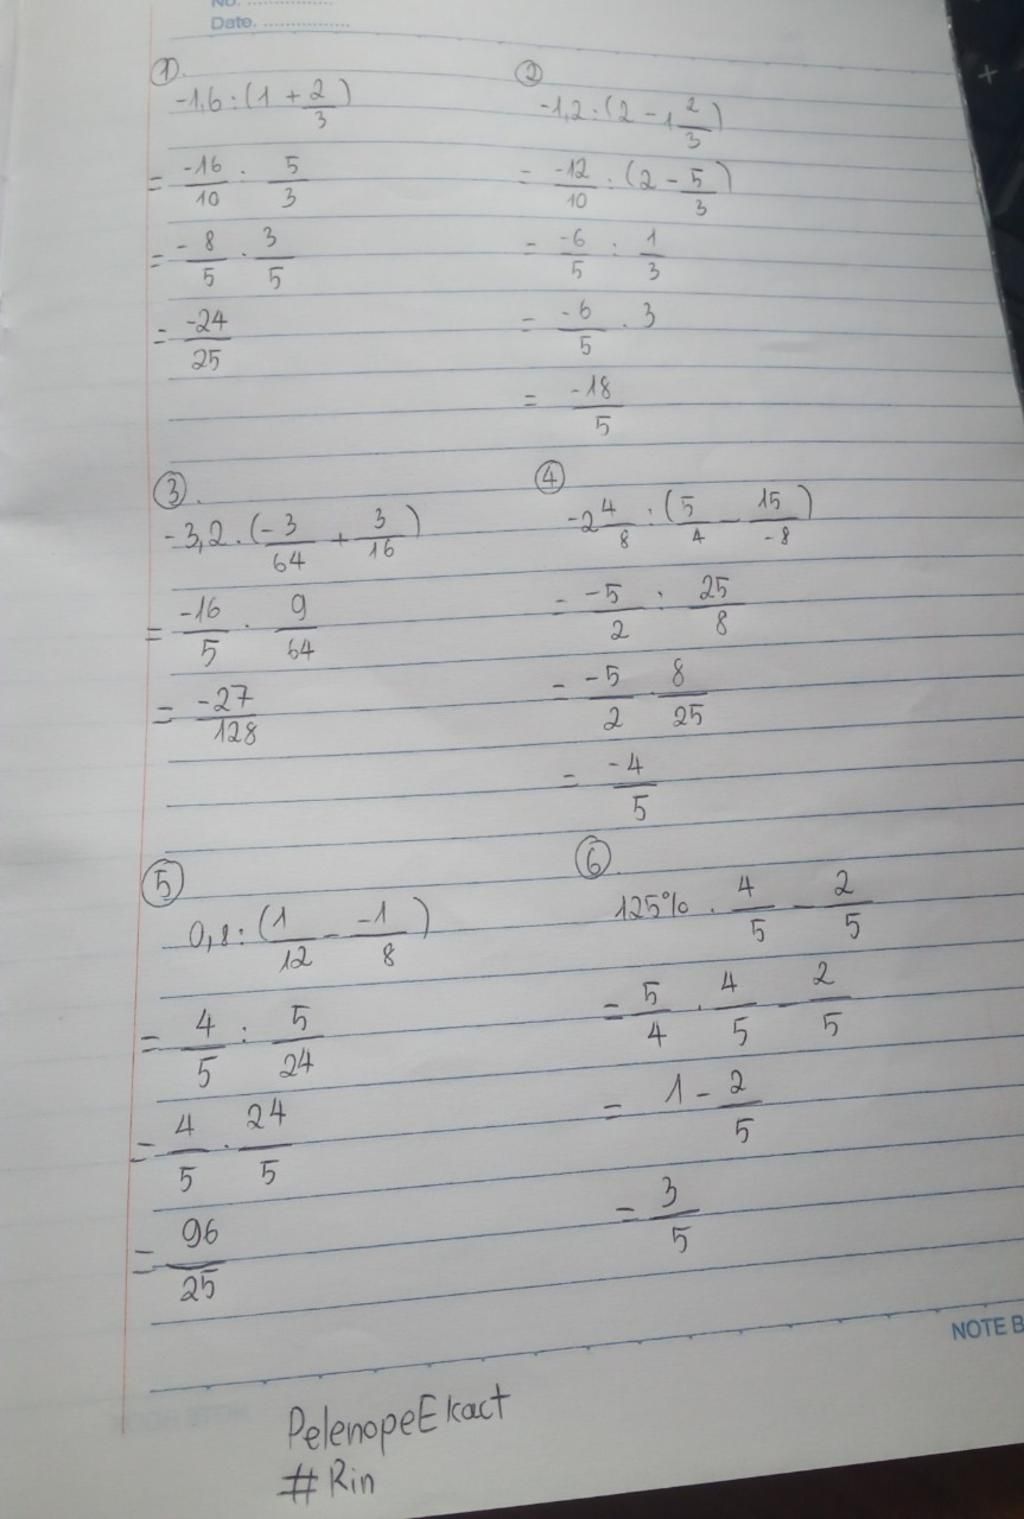 No. ...............
Date. ...............
①.
-1,6 : (1 + 2/3)
= -16/10 : 5/3
= -8/5 . 3/5
= -24/25
②
-1,2 : (2 - 1 2/3)
= -12/10 : (2 - 5/3)
= -6/5 : 1/3
= -6/5 . 3
= -18/5
③.
-3,2 . (-3/64 + 3/16)
= -16/5 . 9/64
= -27/128
④
-2 4/8 : (5/4 - 15/-8)
= -5/2 : 25/8
= -5/2 . 8/25
= -4/5
⑤
0,8 : (1/12 - -1/8)
= 4/5 : 5/24
= 4/5 . 24/5
= 96/25
⑥.
125% . 4/5 - 2/5
= 5/4 . 4/5 - 2/5
= 1 - 2/5
= 3/5
NOTE B
PelenopeEkact
#Rin